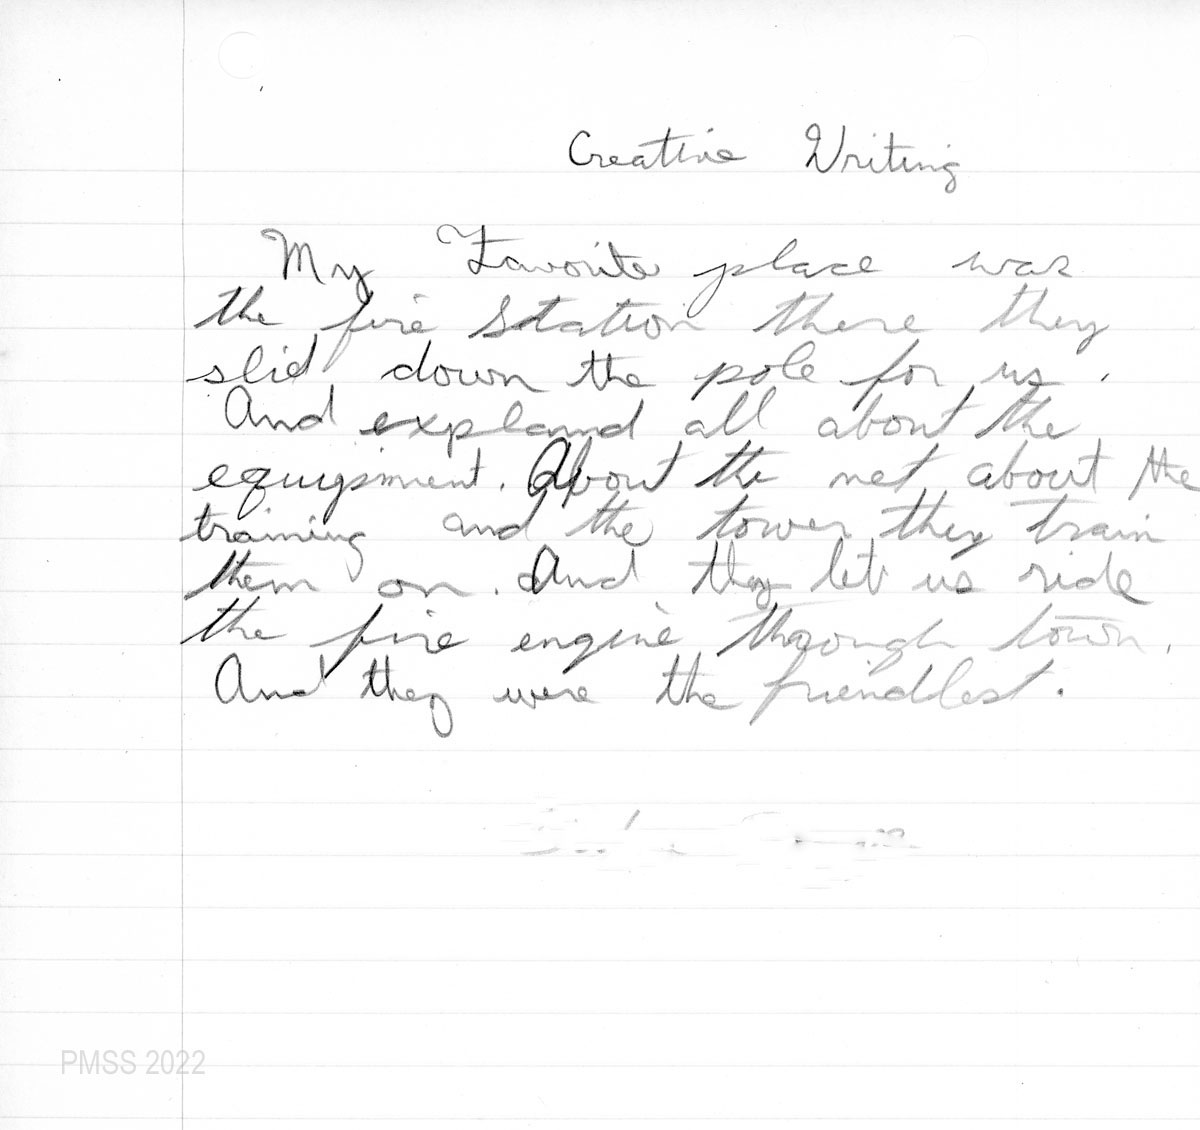 Creative Writing
My Favorite place was
the fire station there they
slid down the pole for us.
And explaind all about the
equipment. About the net about the
training and the tower they train
them on. And they let us ride
the fire engine through town.
And they were the friendlest.
PMSS 2022